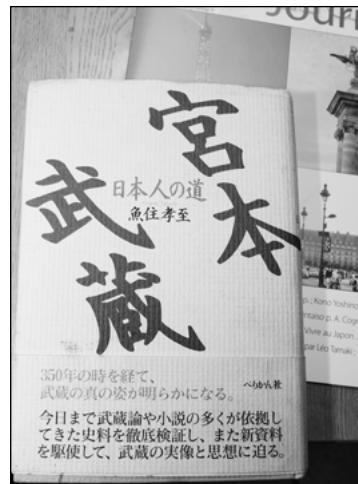 宮本
武蔵
日本人の道
魚住孝至
350年の時を経て、
武蔵の真の姿が明らかになる。
ぺりかん社
今日まで武蔵論や小説の多くが依拠し
てきた史料を徹底検証し、また新資料
を駆使して、武蔵の実像と思想に迫る。
Journ
p.; Kono Yoshino
ntaiso p. A. Cogn
Vivre au Japon
par Léo Tamaki ;